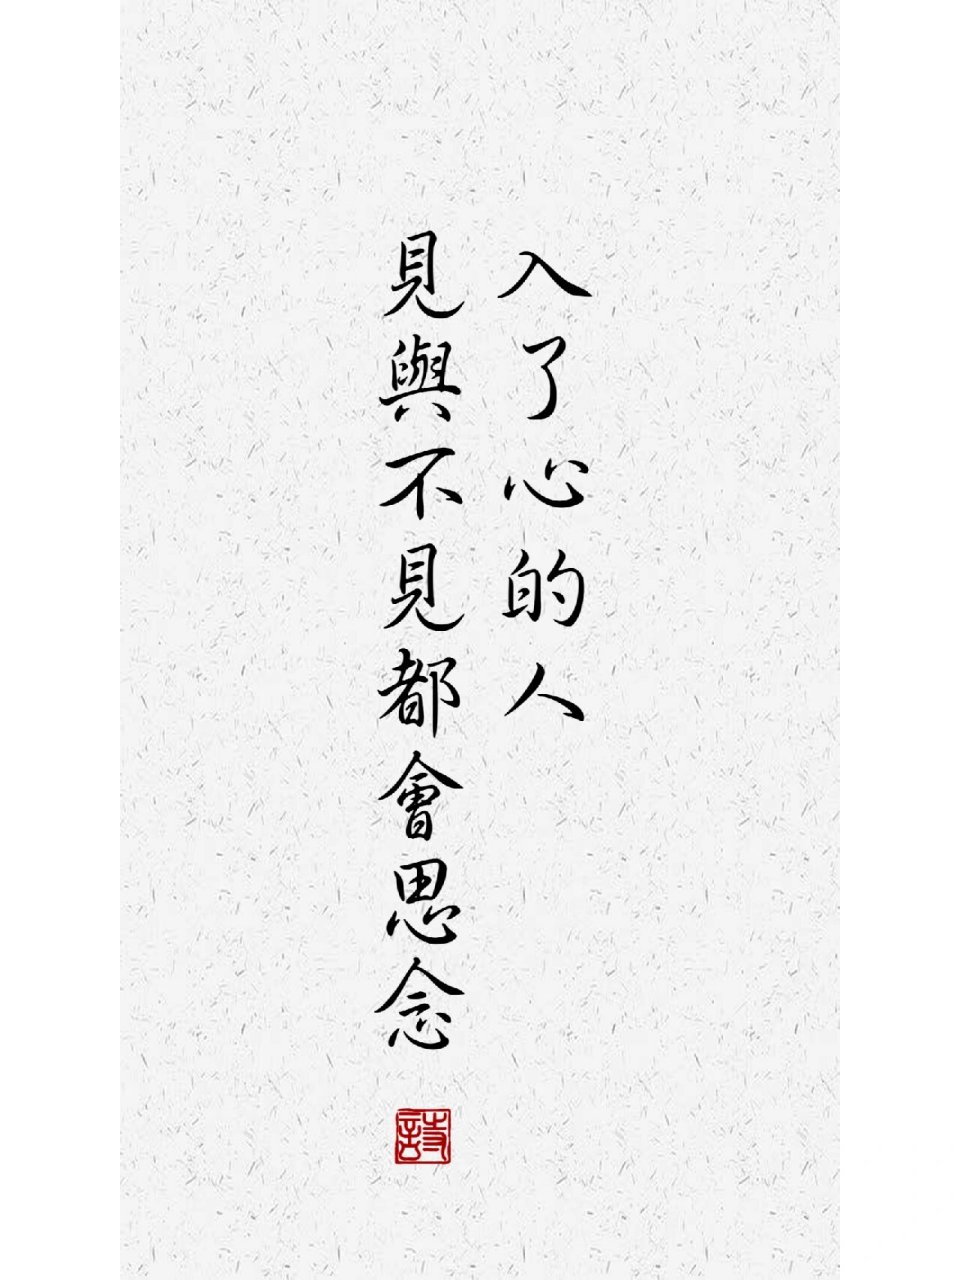 入了心的人
見與不見都會思念
詩